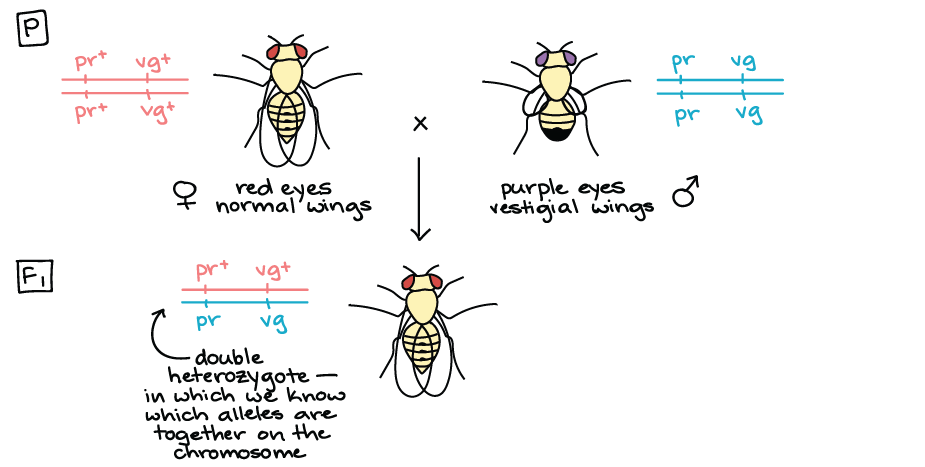 P
pr+ vg+
pr+ vg+
pr vg
pr vg
x
♀ red eyes
normal wings
purple eyes
vestigial wings ♂
F1
pr+ vg+
pr vg
double
heterozygote —
in which we know
which alleles are
together on the
chromosome